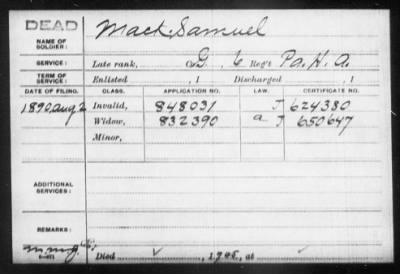 DEAD
NAME OF SOLDIER: Mack Samuel
SERVICE: Late rank, G, 6 Reg't Pa. H. A.
TERM OF SERVICE: Enlisted , 1 Discharged , 1
DATE OF FILING. CLASS. APPLICATION NO. LAW. CERTIFICATE NO.
1890, Aug 2 Invalid, 848031 J 624380
Widow, 832390 a J 650647
Minor,
ADDITIONAL SERVICES:
REMARKS:
Died , 19 , at